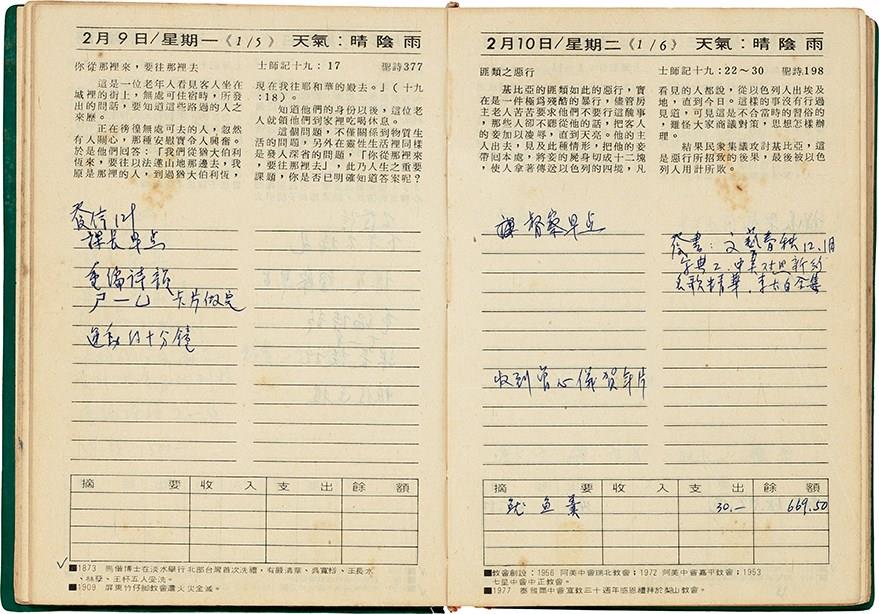 2月9日/星期一《1/5》 天氣：晴陰雨
你從那裡來，要往那裡去
士師記十九：17 聖詩377
這是一位老年人看見客人坐在
城裡的街上，無處可住宿時，所發
出的問話，要知道這些路過的人之
來歷。
正在徬徨無處可去的人，忽然
有人關心，那種安慰實令人興奮。
於是他們回答：「我們從猶大伯利
恆來，要往以法蓮山地那邊去，我
原是那裡的人，到過猶大伯利恆，
現在我往耶和華的殿去。」（十九
：18）。
知道他們的身份以後，這位老
人就領他們到家裡吃喝休息。
這個問題，不僅關係到物質生
活的問題，另外在靈性生活裡同樣
是發人深省的問題，「你從那裡來
，要往那裡去」，此乃人生之重要
課題，你是否已明確知道答案呢？
發信
課長早点
重編詩歌
ㄕㄧㄩ 卡片做完
運動 十分鐘
摘要 收入 支出 餘額
■1873 馬偕博士在淡水舉行北部台灣首次洗禮，有嚴清華、吳寬裕、王長水
、林孽、王杯五人受洗。
■1909 屏東竹仔腳教會遭火災全滅。
2月10日/星期二《1/6》 天氣：晴陰雨
匪類之惡行
士師記十九：22～30 聖詩198
基比亞的匪類如此的惡行，實
在是一件極爲殘酷的暴行，儘管房
主老人苦苦要求他們不要行這醜事
，那些人卻不聽從他的話，把客人
的妾加以凌辱，直到天亮。他的主
人出去，見及此種情形，把他的妾
帶回本處，將妾的屍身切成十二塊
，使人拿著傳送以色列的四境，凡
看見的人都說，從以色列人出埃及
地，直到今日，這樣的事沒有行過
見過，可見這是不合當時的習俗的
，難怪大家商議對策，思想怎樣辦
理。
結果民衆集議攻討基比亞，這
是惡行所招致的後果，最後被以色
列人用計所敗。
課 督察早点
發書：文藝春秋12.1月
字典2. 中英対照新約
名歌精華. 李太白全集
收到曾心儀賀年片
摘要 收入 支出 餘額
魷魚羹 30.— 669.50
■教會創設：1956 阿美中會瑞北教會；1972 阿美中會嘉平教會；1953
七星中會中正教會。
■1977 泰雅爾中會宣教三十週年感恩禮拜於梨山教會。